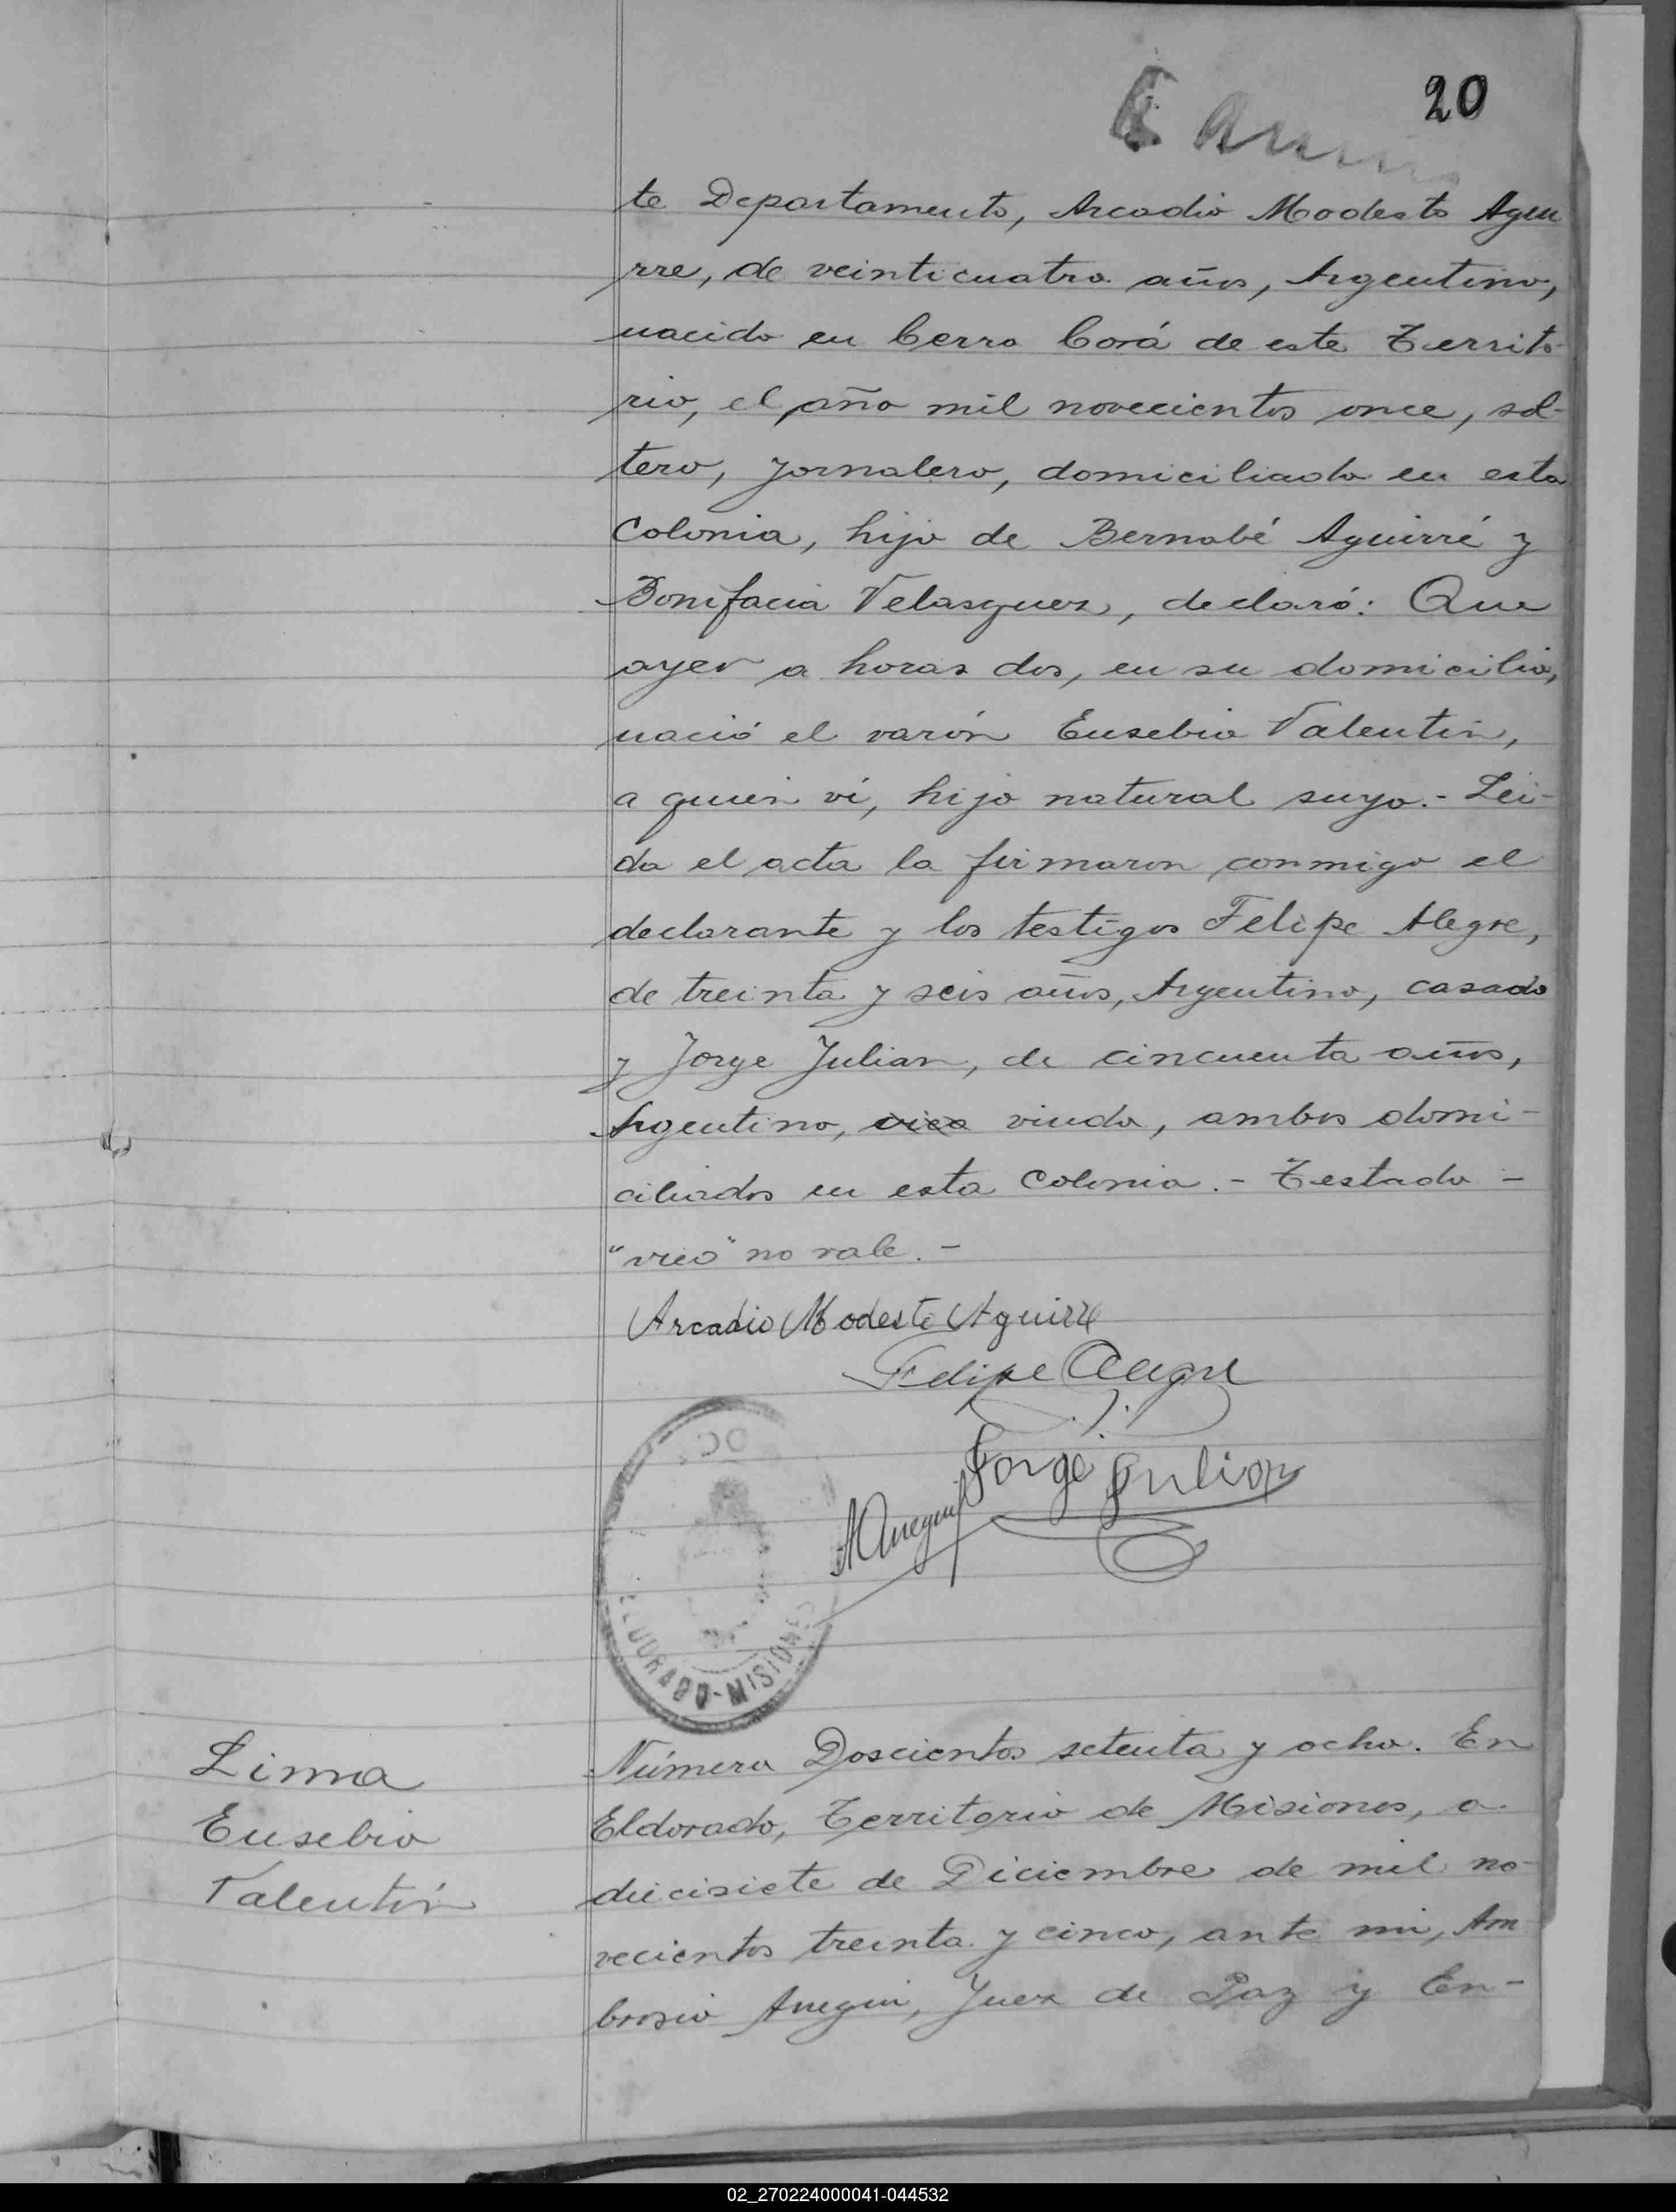 20
te Departamento, Arcadio Modesto Agui
rre, de veinticuatro años, Argentino,
nacido en Cerro Corá de este Territo-
rio, el año mil novecientos once, sol-
tero, jornalero, domiciliado en esta
Colonia, hijo de Bernabé Aguirré y
Bonifacia Velasquez, declaró: Que
ayer a horas dos, en su domicilio,
nació el varón Eusebio Valentin,
a quien ví, hijo natural suyo.- Lei-
da el acta la firmaron conmigo el
declarante y los testigos Felipe Alegre,
de treinta y seis años, Argentino, casado
y Jorge Julian, de cincuenta años,
Argentino, vico viudo, ambos domi-
ciliados en esta Colonia.- Testado -
"vico" no vale.-
Arcadio Modesto Aguirre
Felipe Alegre
Jorge Julian
AAnegui
ELDORADO-MISIONES
Lima
Eusebio
Valentín
Número Doscientos setenta y ocho. En
Eldorado, Territorio de Misiones, a
diecisiete de Diciembre de mil no-
vecientos treinta y cinco, ante mi, Am
brosio Anegui, Juez de Paz y En-
02_270224000041-044532